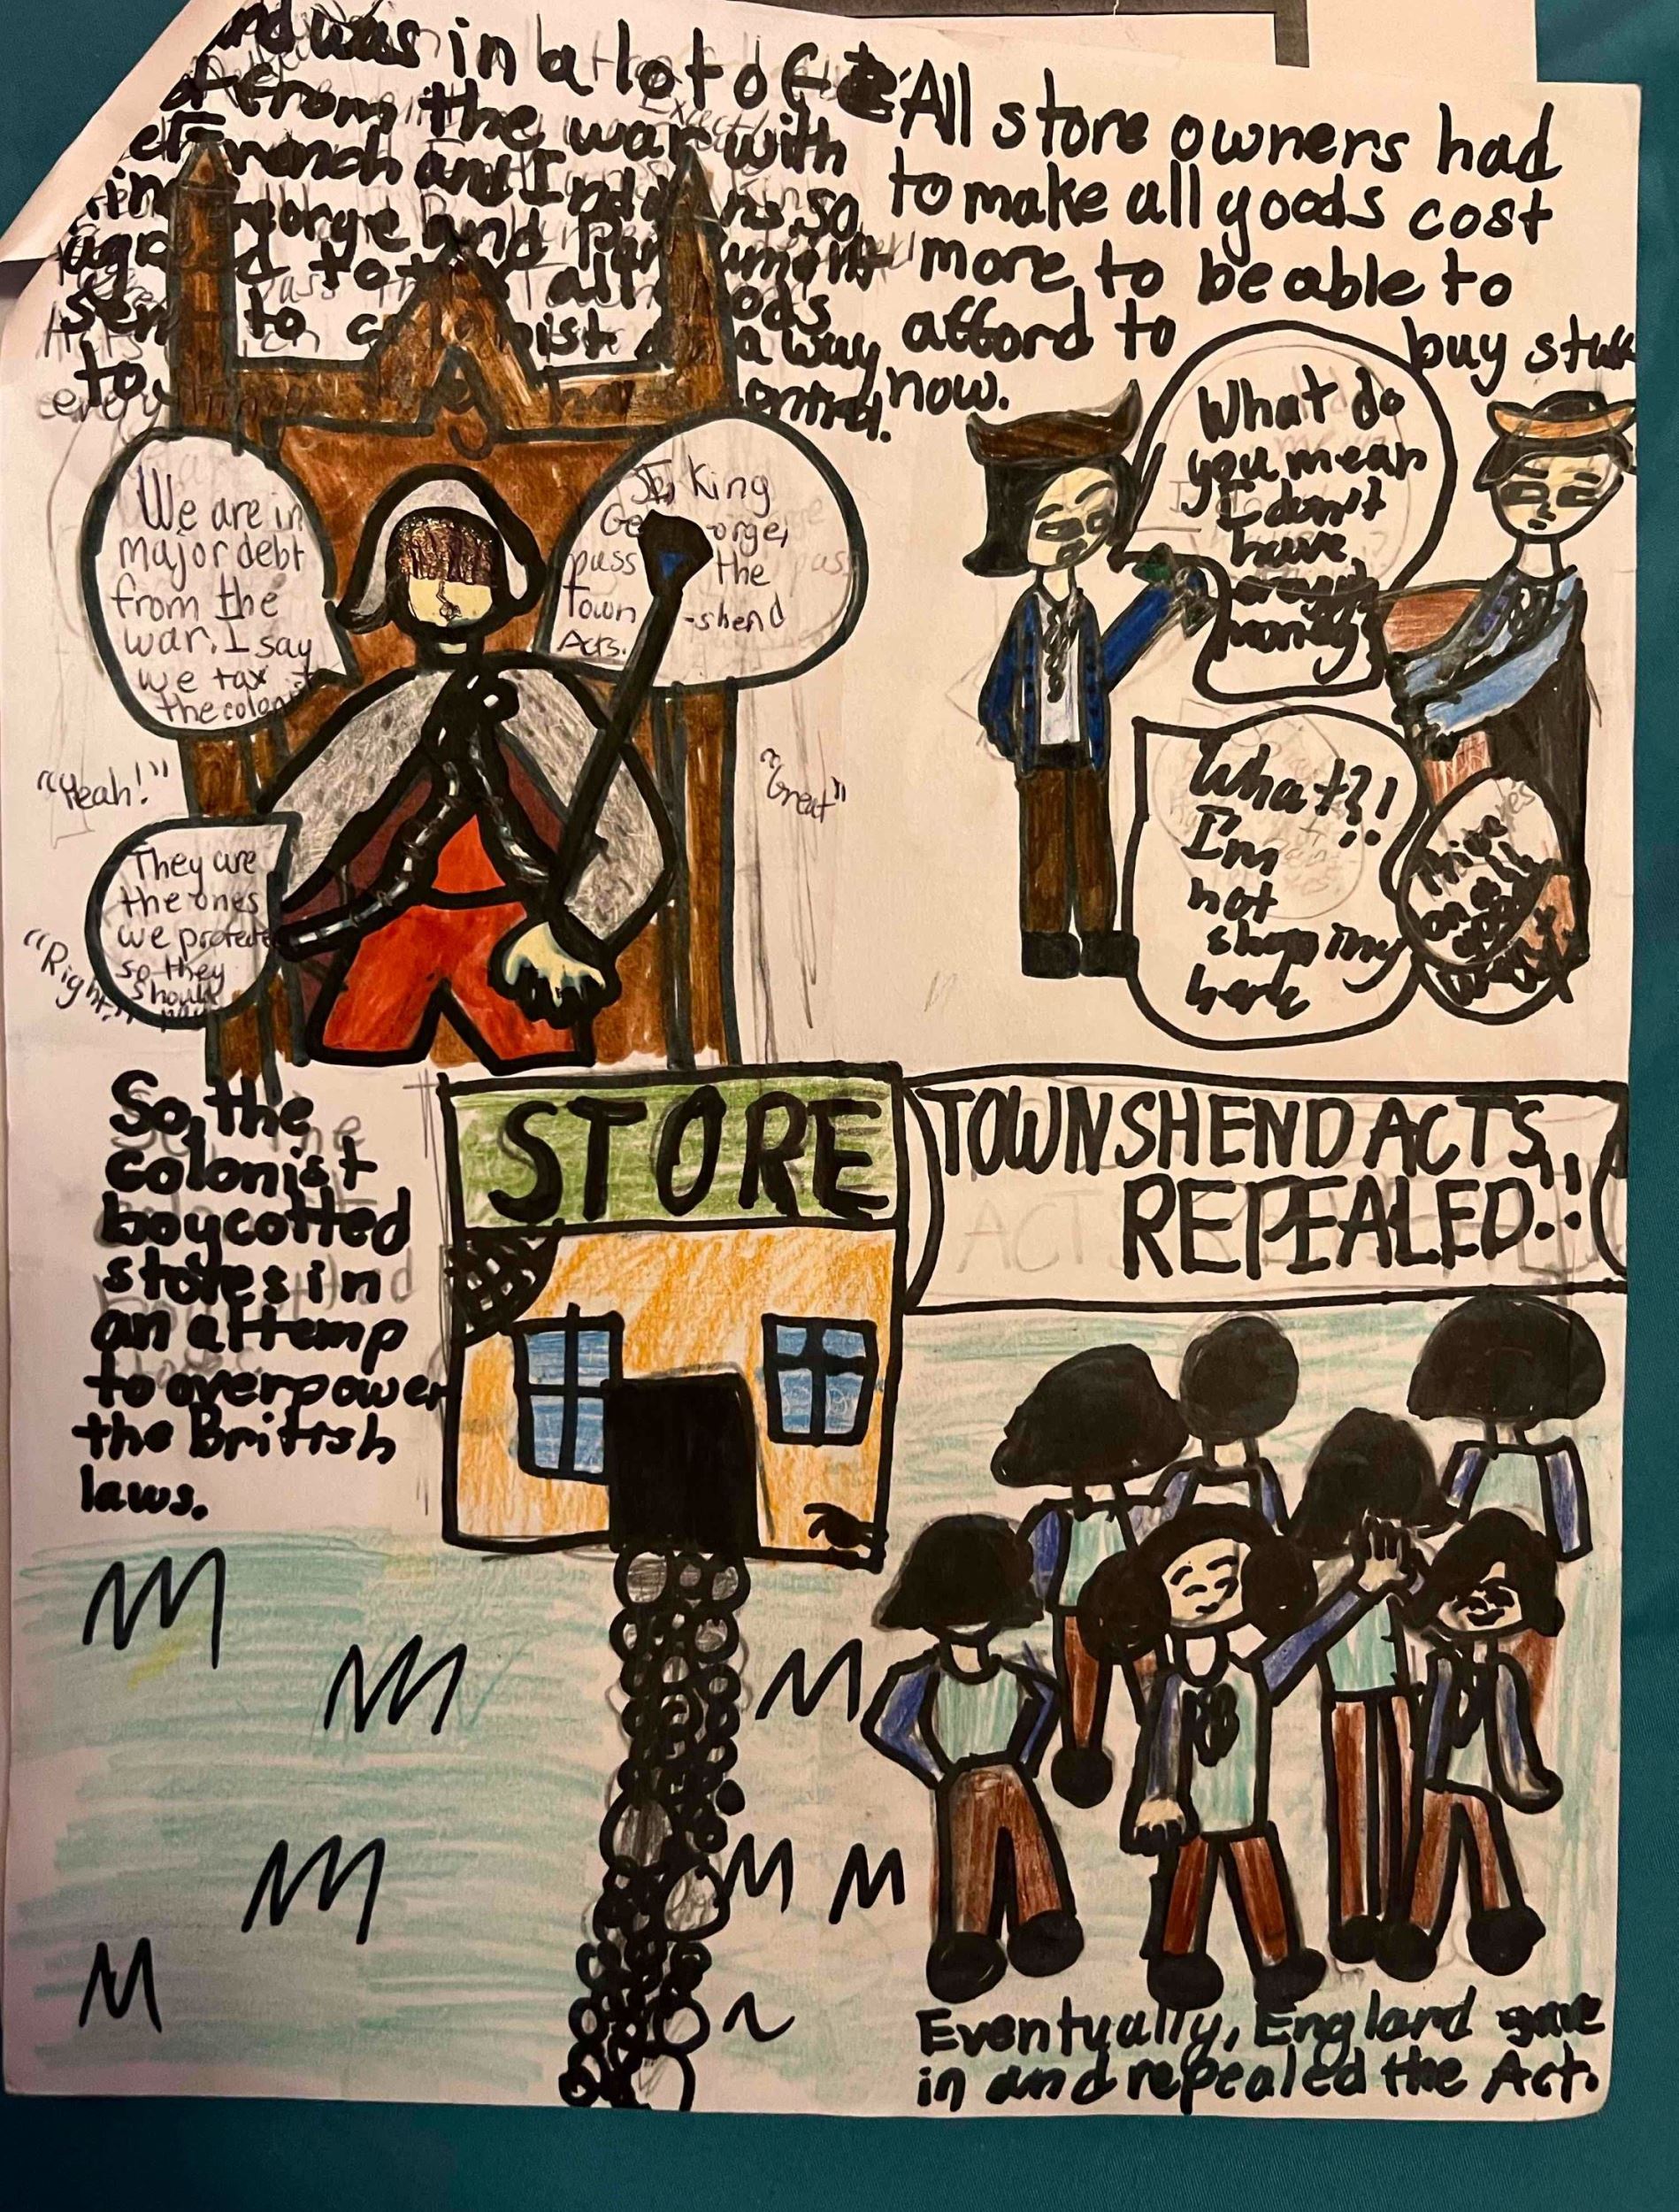 nd was in a lot of
from the war with
French and Indians. So
George and Parliament
to tax all goods
sent to colonist a way
to
All store owners had
to make all goods cost
more to be able to
afford to buy stuff
now.
We are in
major debt
from the
war. I say
we tax
the colonist
King
George,
pass the
Town-shend
Acts.
"Yeah!"
"Great"
They are
the ones
we protected
so they
should
pay
"Right."
What do
you mean
I don't
have
enough
money
What?!
I'm
not
shopping
here
So, the
colonist
boycotted
stores in
an attemp
to overpower
the British
laws.
STORE
TOWNSHEND ACTS
REPEALED
Eventually, England gave
in and repealed the Act.